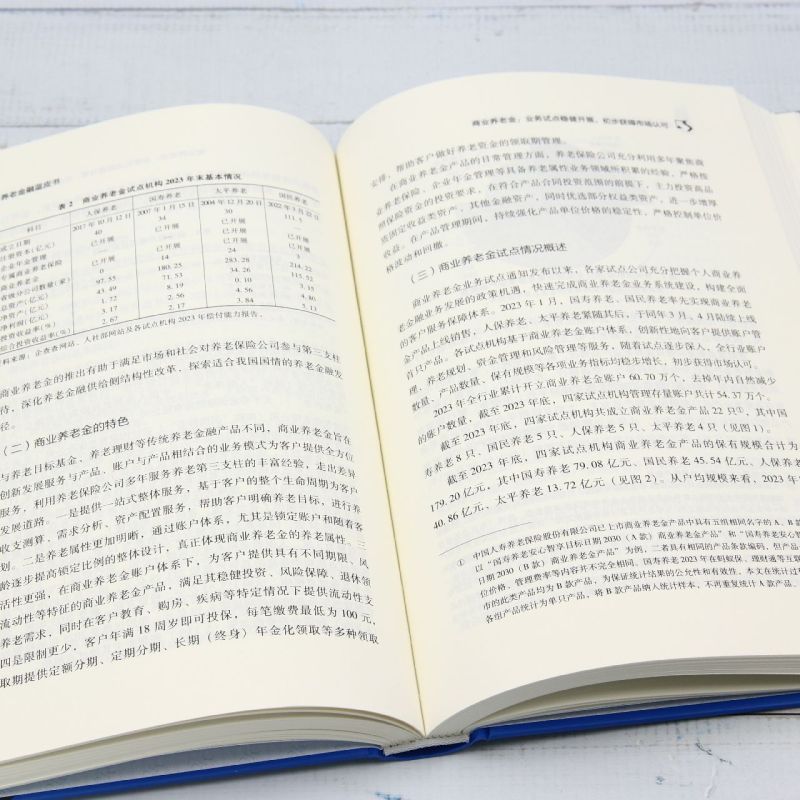 养老金融蓝皮书
表 2 商业养老金试点机构 2023 年末基本情况
科目 人保养老 国寿养老 太平养老 国民养老
成立日期 2017 年 10 月 12 日 2007 年 1 月 15 日 2004 年 12 月 20 日 2022 年 3 月 22 日
注册资本(亿元) 40 34 30 111.5
企业年金管理 已开展 已开展 已开展 —
专属商业养老保险
商业养老金
省级分公司数量(家) 0 14 24 3
总资产(亿元) 97.55 180.25 283.28 214.22
净资产(亿元) 43.49 71.53 34.26 115.52
净利润(亿元) 1.72 8.19 0.10 3.15
投资收益率(%) 3.17 2.56 4.56 4.80
综合投资收益率(%) 2.67 2.17 3.84 2.13
资料来源:企查查网站、人社部网站及各试点机构 2023 年偿付能力报告。
商业养老金的推出有助于满足市场和社会对养老保险公司参与第三支柱
待,深化养老金融供给侧结构性改革,探索适合我国国情的养老金融发
径。
(二)商业养老金的特色
与养老目标基金、养老理财等传统养老金融产品不同,商业养老金旨在
创新发展服务与产品、账户与产品相结合的业务模式为客户提供全方位
服务,利用养老保险公司多年服务养老第三支柱的丰富经验,走出差异
发展道路。一是提供一站式整体服务,基于客户的整个生命周期为客户
收支测算、需求分析、资产配置服务,帮助客户明确养老目标,进行养
划。二是养老属性更加明晰,通过账户体系,尤其是锁定账户和随着客
龄逐步提高锁定比例的整体设计,真正体现商业养老金的养老属性。三
活性更强,在商业养老金账户体系下,为客户提供具有不同期限、风
流动性等特征的商业养老金产品,满足其稳健投资、风险保障、退休领
养老需求,同时在客户教育、购房、疾病等特定情况下提供流动性支
四是限制更少,客户年满 18 周岁即可投保,每笔缴费最低为 100 元,
取期提供定额分期、定期分期、长期(终身)年金化领取等多种领取
商业养老金:业务试点稳健开展,初步获得市场认可
支撑,帮助客户做好养老资金的领取期管理。
在商业养老金产品的日常管理方面,养老保险公司充分利用多年聚焦商
业养老保险、企业年金管理等具备养老属性业务领域所积累的经验,严格按
照保险资金的投资要求,在符合产品合同投资范围的前提下,主力投资高品
质固定收益类资产、其他金融资产,同时优选部分权益类资产,进一步增厚
收益。在产品管理期间,持续强化产品单位价格的稳定性,严格控制单位价
格波动和回撤。
(三)商业养老金试点情况概述
商业养老金业务试点通知发布以来,各家试点公司充分把握个人商业养
老金融业务发展的政策机遇,快速完成商业养老金业务系统建设,构建全面
的客户服务保障体系。2023 年 1 月,国寿养老、国民养老率先实现商业养老
金产品上线销售,人保养老、太平养老紧随其后,于同年 3 月、4 月陆续上线
首只产品。各试点机构基于商业养老金账户体系,创新性地向客户提供账户管
理、养老规划、资金管理和风险管理等服务,随着试点逐步深入,全行业账户
数量、产品数量、保有规模等各项业务指标均稳步增长,初步获得市场认可。
2023 年全行业累计开立商业养老金账户 60.70 万个,去掉年内自然减少
的账户数量,截至 2023 年底,四家试点机构管理存量账户共计 54.37 万个。
截至 2023 年底,四家试点机构共成立商业养老金产品 22 只①,其中国
寿养老 8 只、国民养老 5 只、人保养老 5 只、太平养老 4 只(见图 1)。
截至 2023 年底,四家试点机构商业养老金产品的保有规模合计为
179.20 亿元,其中国寿养老 79.08 亿元、国民养老 45.54 亿元、人保养老
40.86 亿元,太平养老 13.72 亿元(见图 2)。从户均规模来看,2023 年
① 中国人寿养老保险股份有限公司已上市商业养老金产品中具有五组相同名字的 A、B 款
以“国寿养老安心智享目标日期 2030(A 款)商业养老金产品”和“国寿养老安心智
日期 2030(B 款)商业养老金产品”为例,二者具有相同的产品条款编码,但产品
位价格、管理费率等内容并不完全相同。国寿养老2023 年在蚂蚁保、理财通等互联
市的此类产品均为 B 款产品,为保证统计结果的公允性和有效性,本文在统计过
各组产品统计为单只产品,将 B 款产品纳入统计样本,不再重复统计 A 款产品。